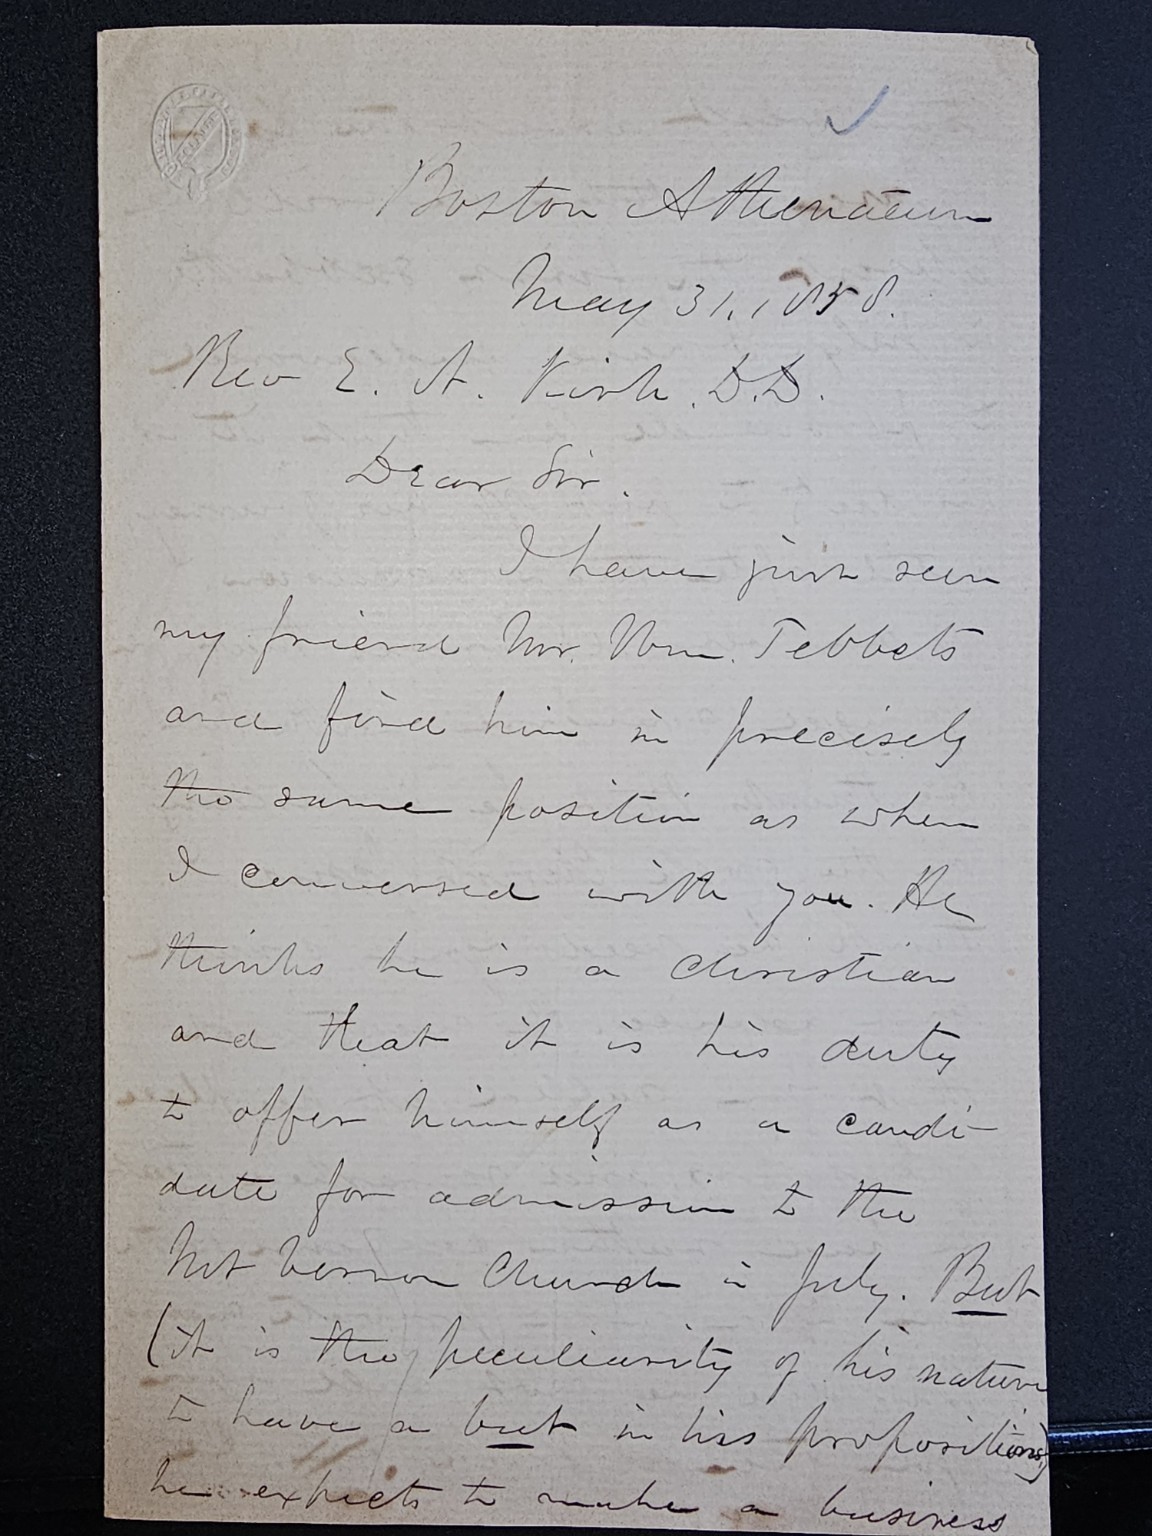 Boston Athenaeum
May 31, 1858.
Rev E. N. Kirk. D.D.
Dear Sir.
I have just seen
my friend Mr. Wm. Tebbets
and find him in precisely
the same position as when
I conversed with you. He
thinks he is a Christian
and that it is his duty
to offer himself as a candi-
date for admission to the
Mt Vernon Church in July. But
(it is the peculiarity of his nature
to have a but in his propositions)
he expects to make a business